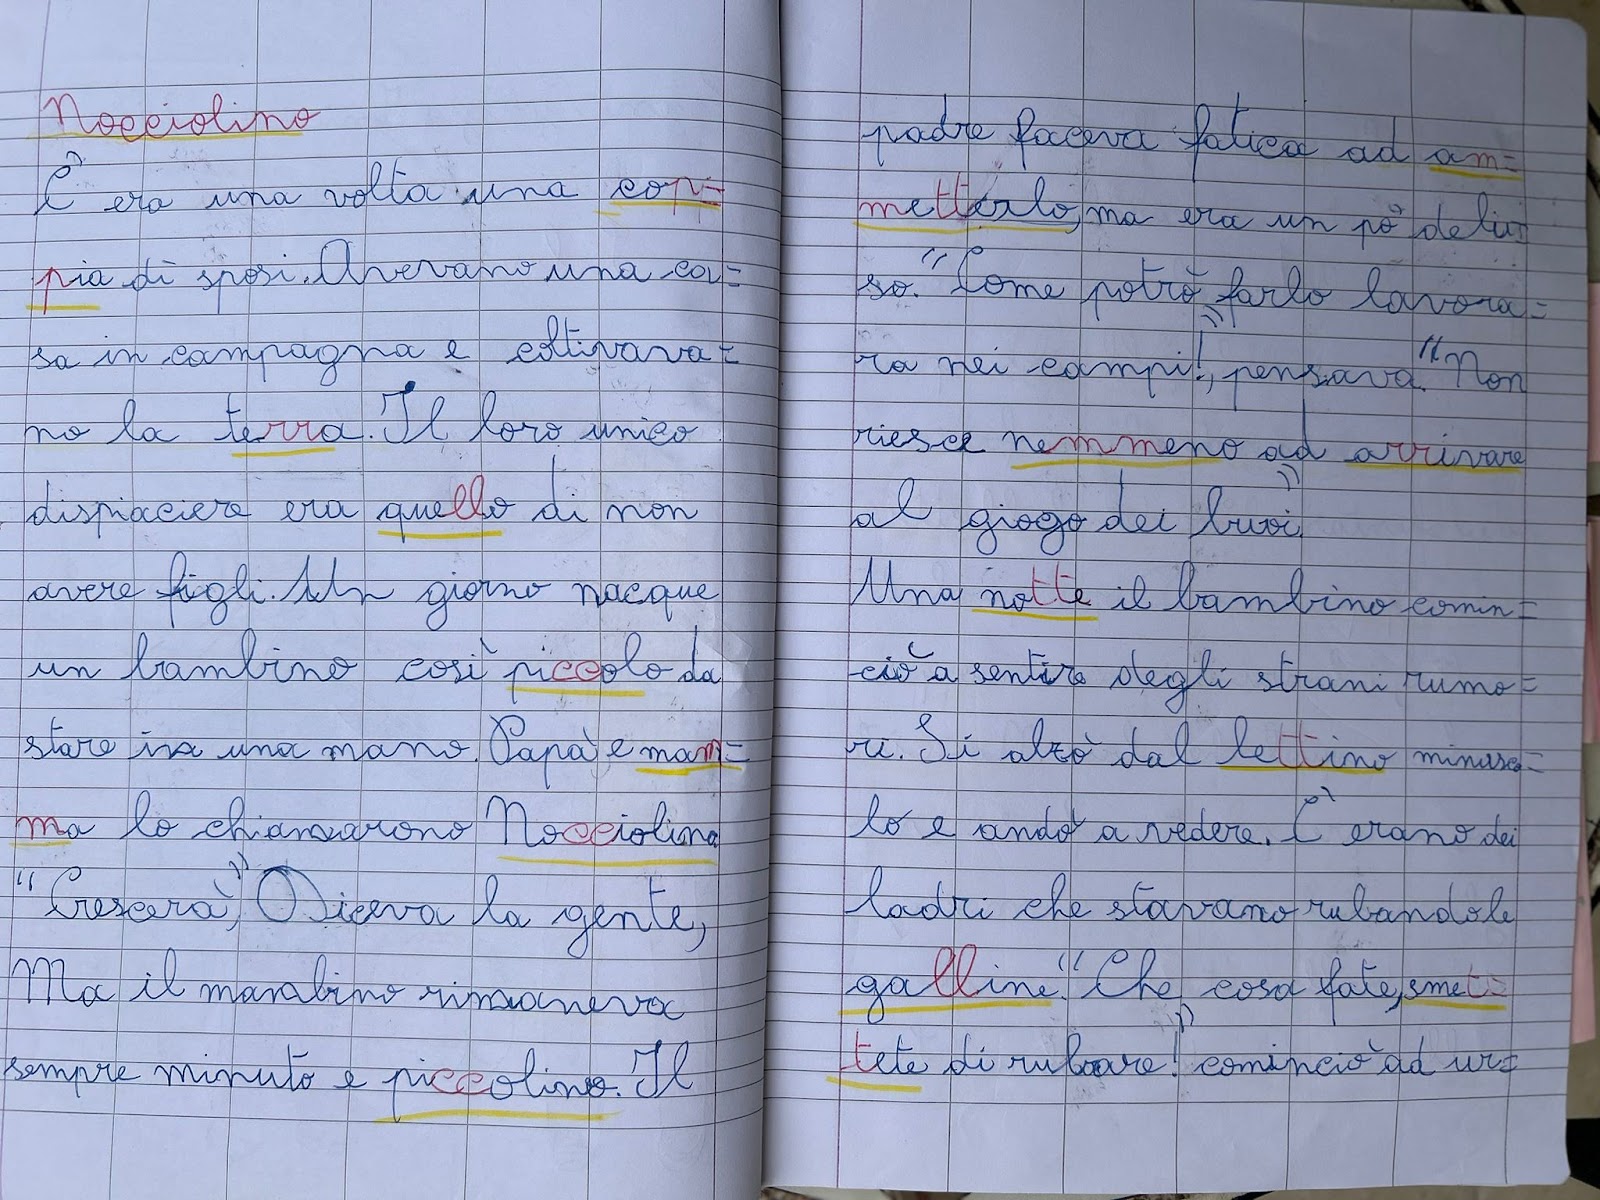 Nocciolino
C'era una volta una cop=
pia di sposi. Avevano una ca=
sa in campagna e coltivava=
no la terra. Il loro unico
dispiacere era quello di non
avere figli. Un giorno nacque
un bambino così piccolo da
stare in una mano. Papà e mam=
ma lo chiamarono Nocciolino
"Crescerà", Diceva la gente,
Ma il mambino rimaneva
sempre minuto e piccolino. Il
padre faceva fatica ad am=
metterlo, ma era un pò delu=
so. "Come potrò farlo lavora=
ra nei campi!", pensava. "Non
riesce nemmeno ad arrivare
al giogo dei buoi"
Una notte il bambino comin=
ciò a sentire degli strani rumo=
ri. Si alzò dal lettino minusco=
lo e andò a vedere. C'erano dei
ladri che stavano rubando le
galline. "Che cosa fate, smet=
tete di rubare!" cominciò ad ur=